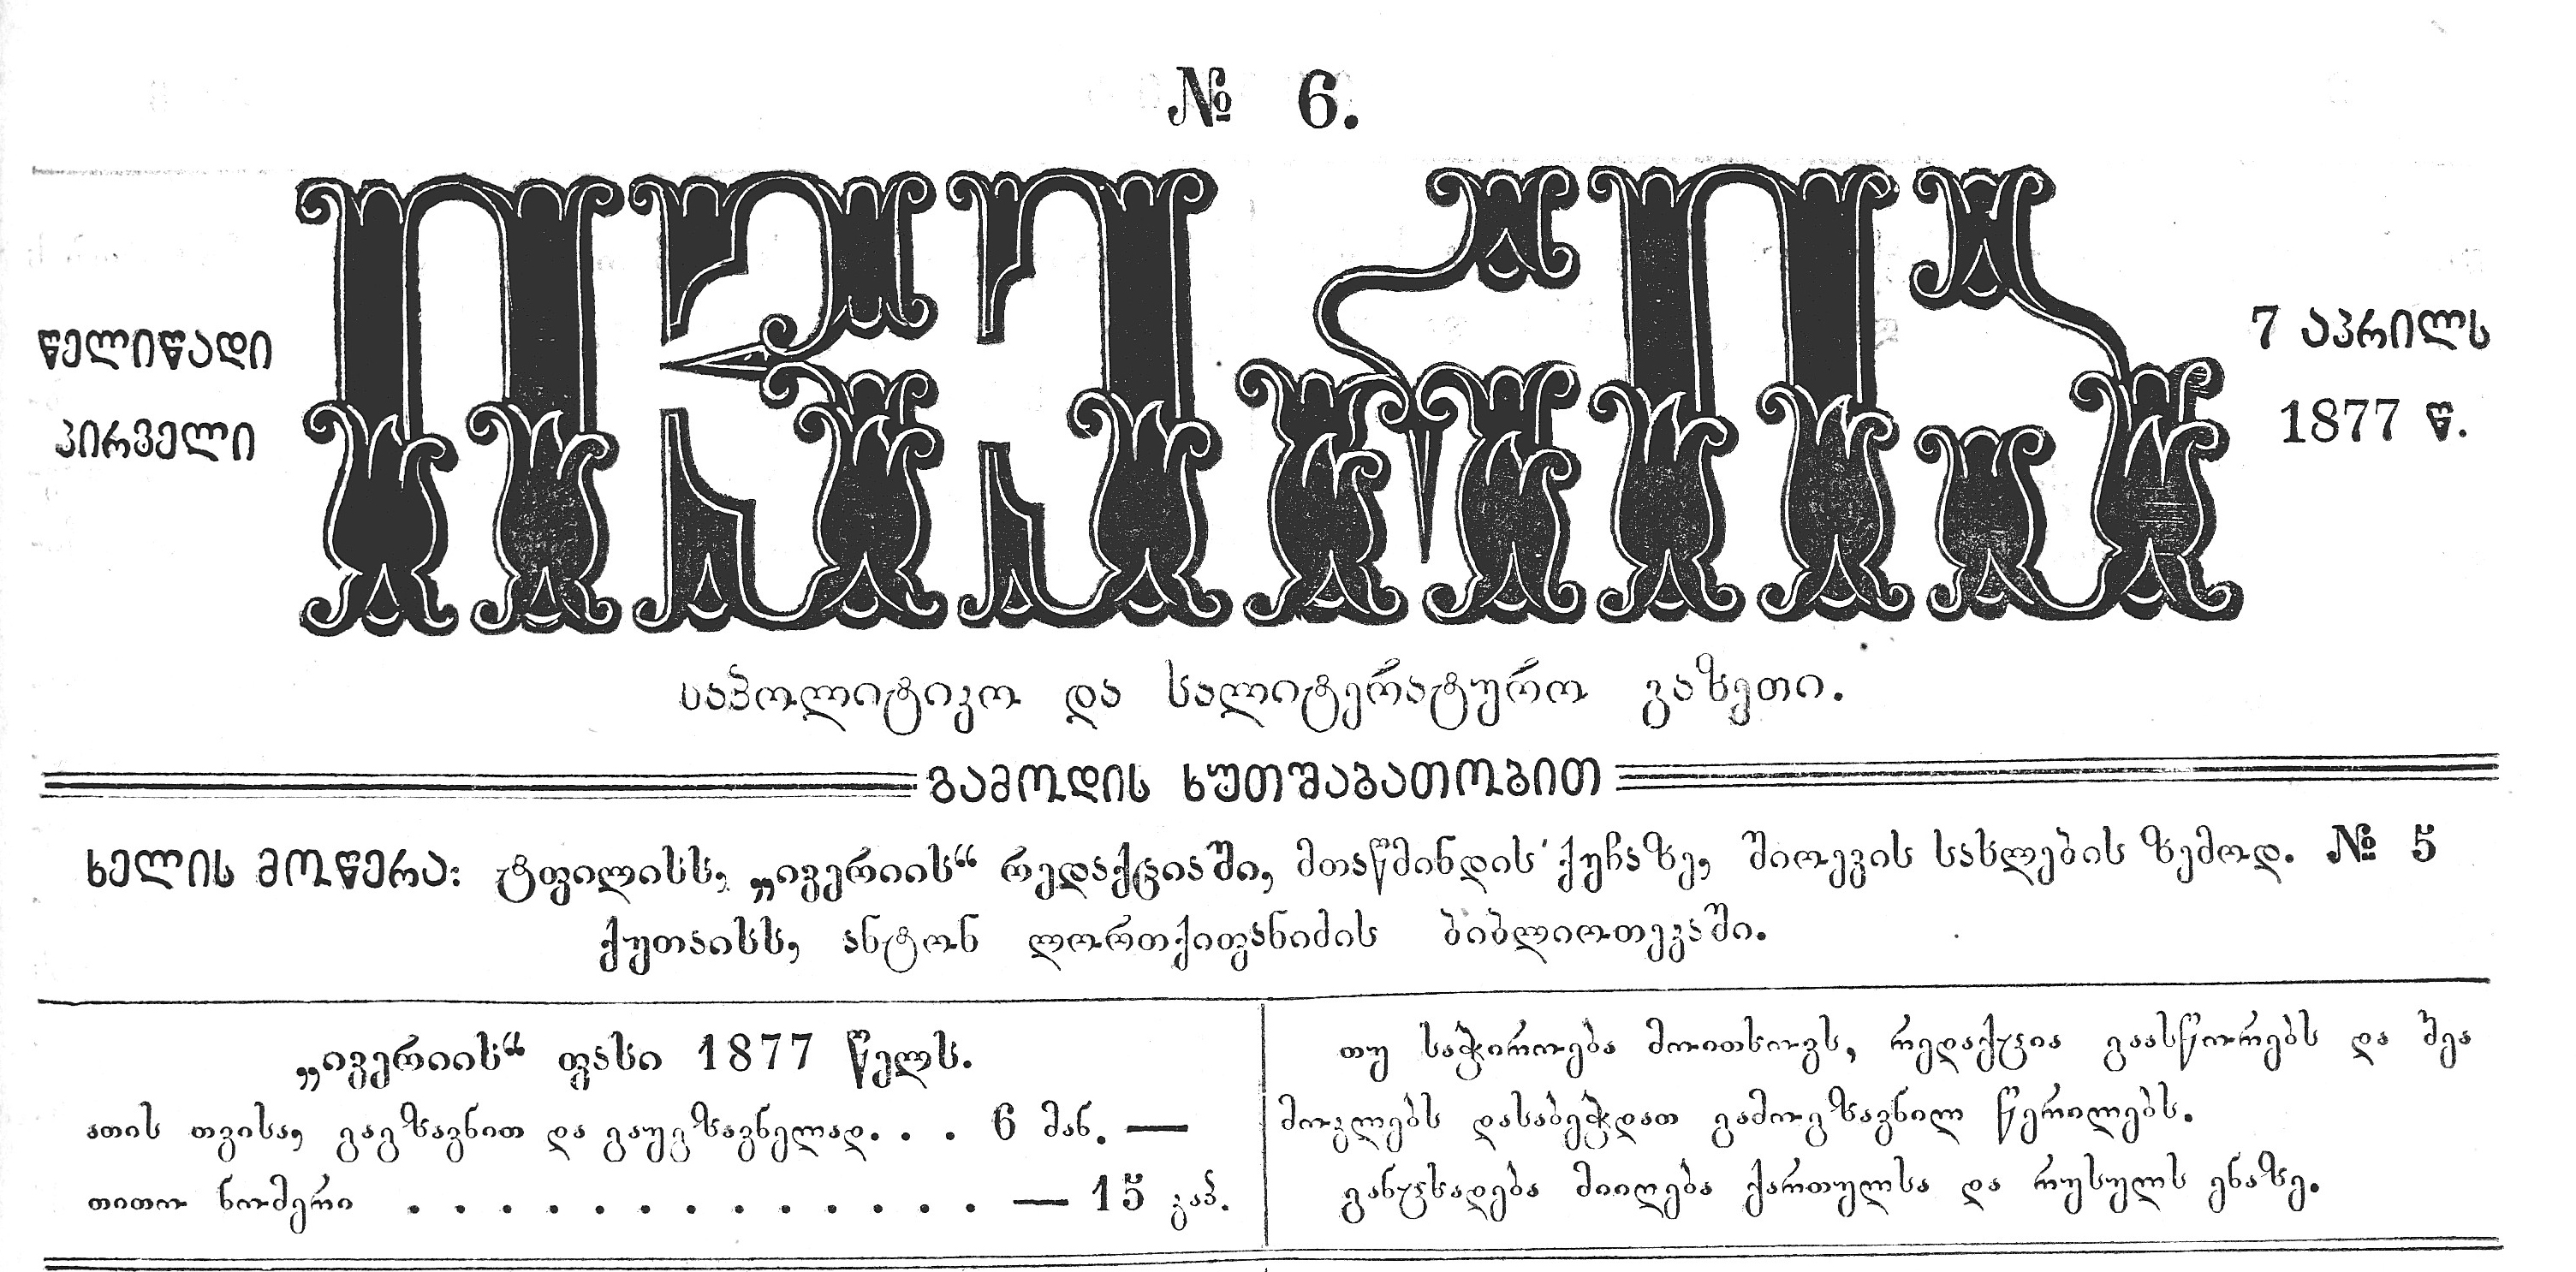 № 6.
წელიწადი
პირველი
ივერია
7 აპრილს
1877 წ.
საპოლიტიკო და სალიტერატურო გაზეთი.
გამოდის ხუთშაბათობით
ხელის მოწერა: ტფილისს, „ივერიის“ რედაქციაში, მთაწმინდის ქუჩაზე, შიოევის სახლების ზემოდ. № 5
ქუთაისს, ანტონ ლორთქიფანიძის ბიბლიოთეკაში.
„ივერიის“ ფასი 1877 წელს.
ათის თვისა, გაგზავნით და გაუგზავნელად. . . 6 მან. —
თითო ნომერი . . . . . . . . . . . . . — 15 კაპ.
თუ საჭიროება მოითხოვს, რედაქცია გაასწორებს და შეა
მოკლებს დასაბეჭდათ გამოგზავნილ წერილებს.
განცხადება მიიღება ქართულსა და რუსულს ენაზე.